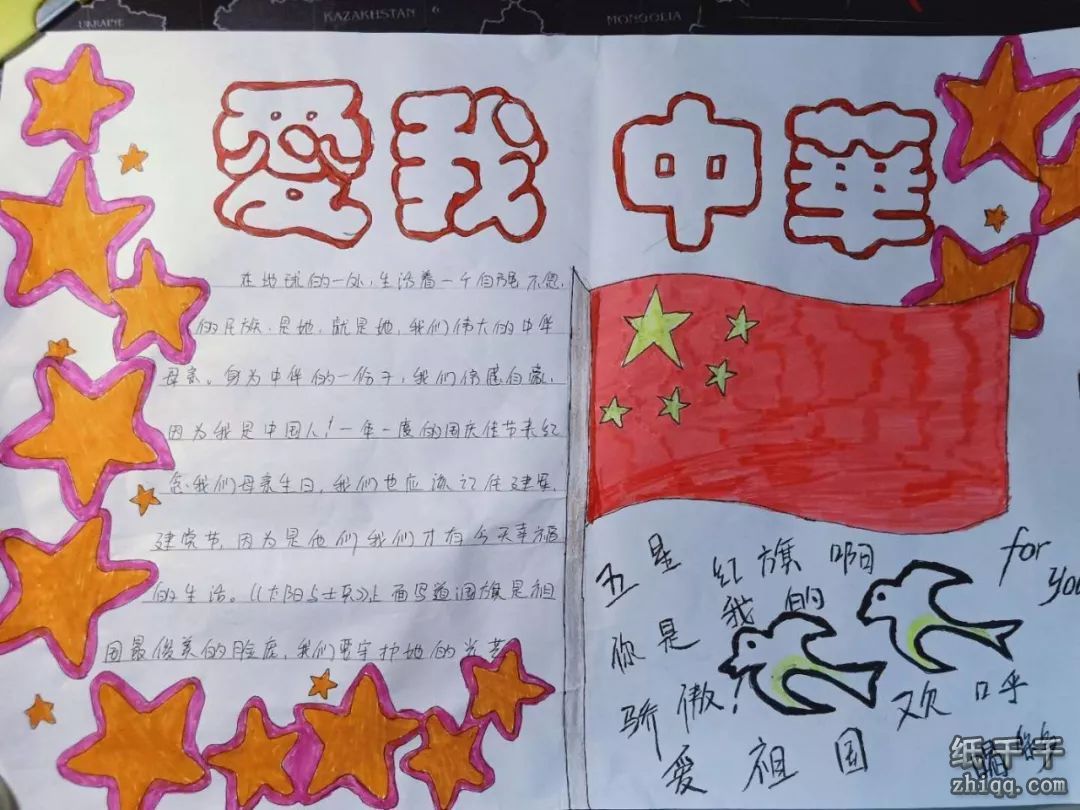 UKRAINE
KAZAKHSTAN 6
MONGOLIA
爱我中華
在地球的一处,生活着一个自强不息
的民族,是她,就是她,我们伟大的中华
母亲。身为中华的一份子,我们倍感自豪,
因为我是中国人!一年一度的国庆佳节来纪
念我们母亲生日,我们也应该记住建军
建党节,因为是他们我们才有今天幸福
的生活。《太阳与士兵》上面写道国旗是祖
国最俊美的脸庞,我们要守护她的光芒
五星红旗啊
你是我的
骄傲!
for
you
欢呼
爱祖国
纸千千
zhiqq.com